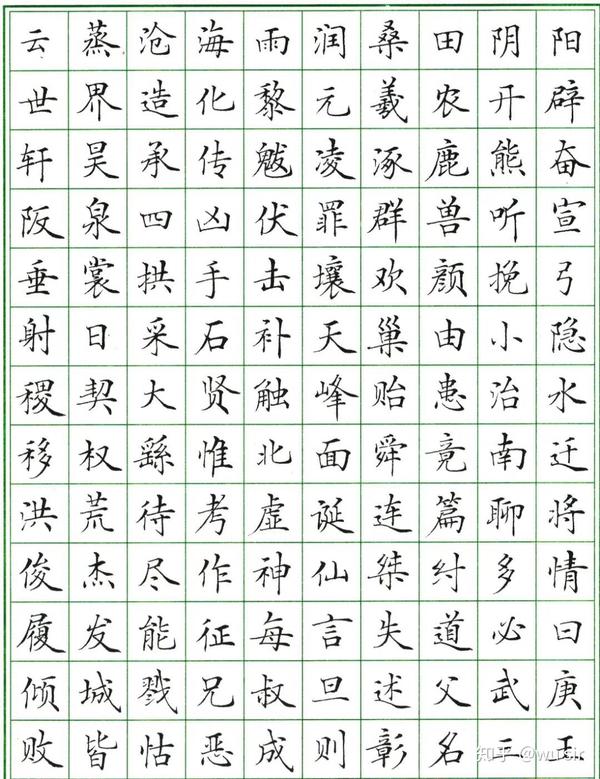 云蒸沧海雨润桑田阴阳
世界造化黎元羲农开辟
轩昊承传魃凌涿鹿熊奋
阪泉四凶伏罪群兽听宣
垂裳拱手击壤欢颜挽弓
射日采石补天巢由小隐
稷契大贤触峰贻患治水
移权繇惟北面舜竟南迁
洪荒待考虚诞连篇聊将
俊杰尽作神仙桀纣多情
履发能征每言失道必曰
倾城戮兄叔旦述父武庚
败皆怙恶成则彰名二王
知乎 @wusir